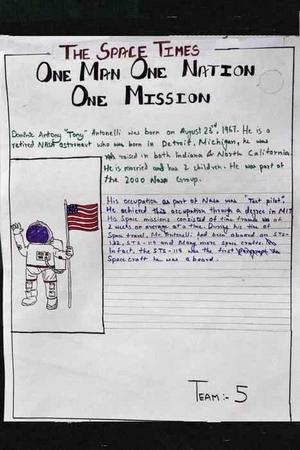 The Space Times
One Man One Nation
One Mission
Dominic Antony "Tony" Antonelli was born on August 23rd, 1967. He is a
retired NASA astronaut who was born in Detroit, Michigan, he was
raised in both Indiana & North California.
He is married and has 2 children. He was part
of the 2000 Nasa Group.
His occupation as part of Nasa was "Test pilot".
He achieved this occupation through a degree in MIT.
His Space missions consisted of time frames of
2 weeks on average at a time. During his time of
Space travel, Mr. Antonelli had been aboard on STS-
132, STS-119 and Many more space crafts.
Infact, the STS-119 was the first
Space craft he was aboard.
Team:- 5